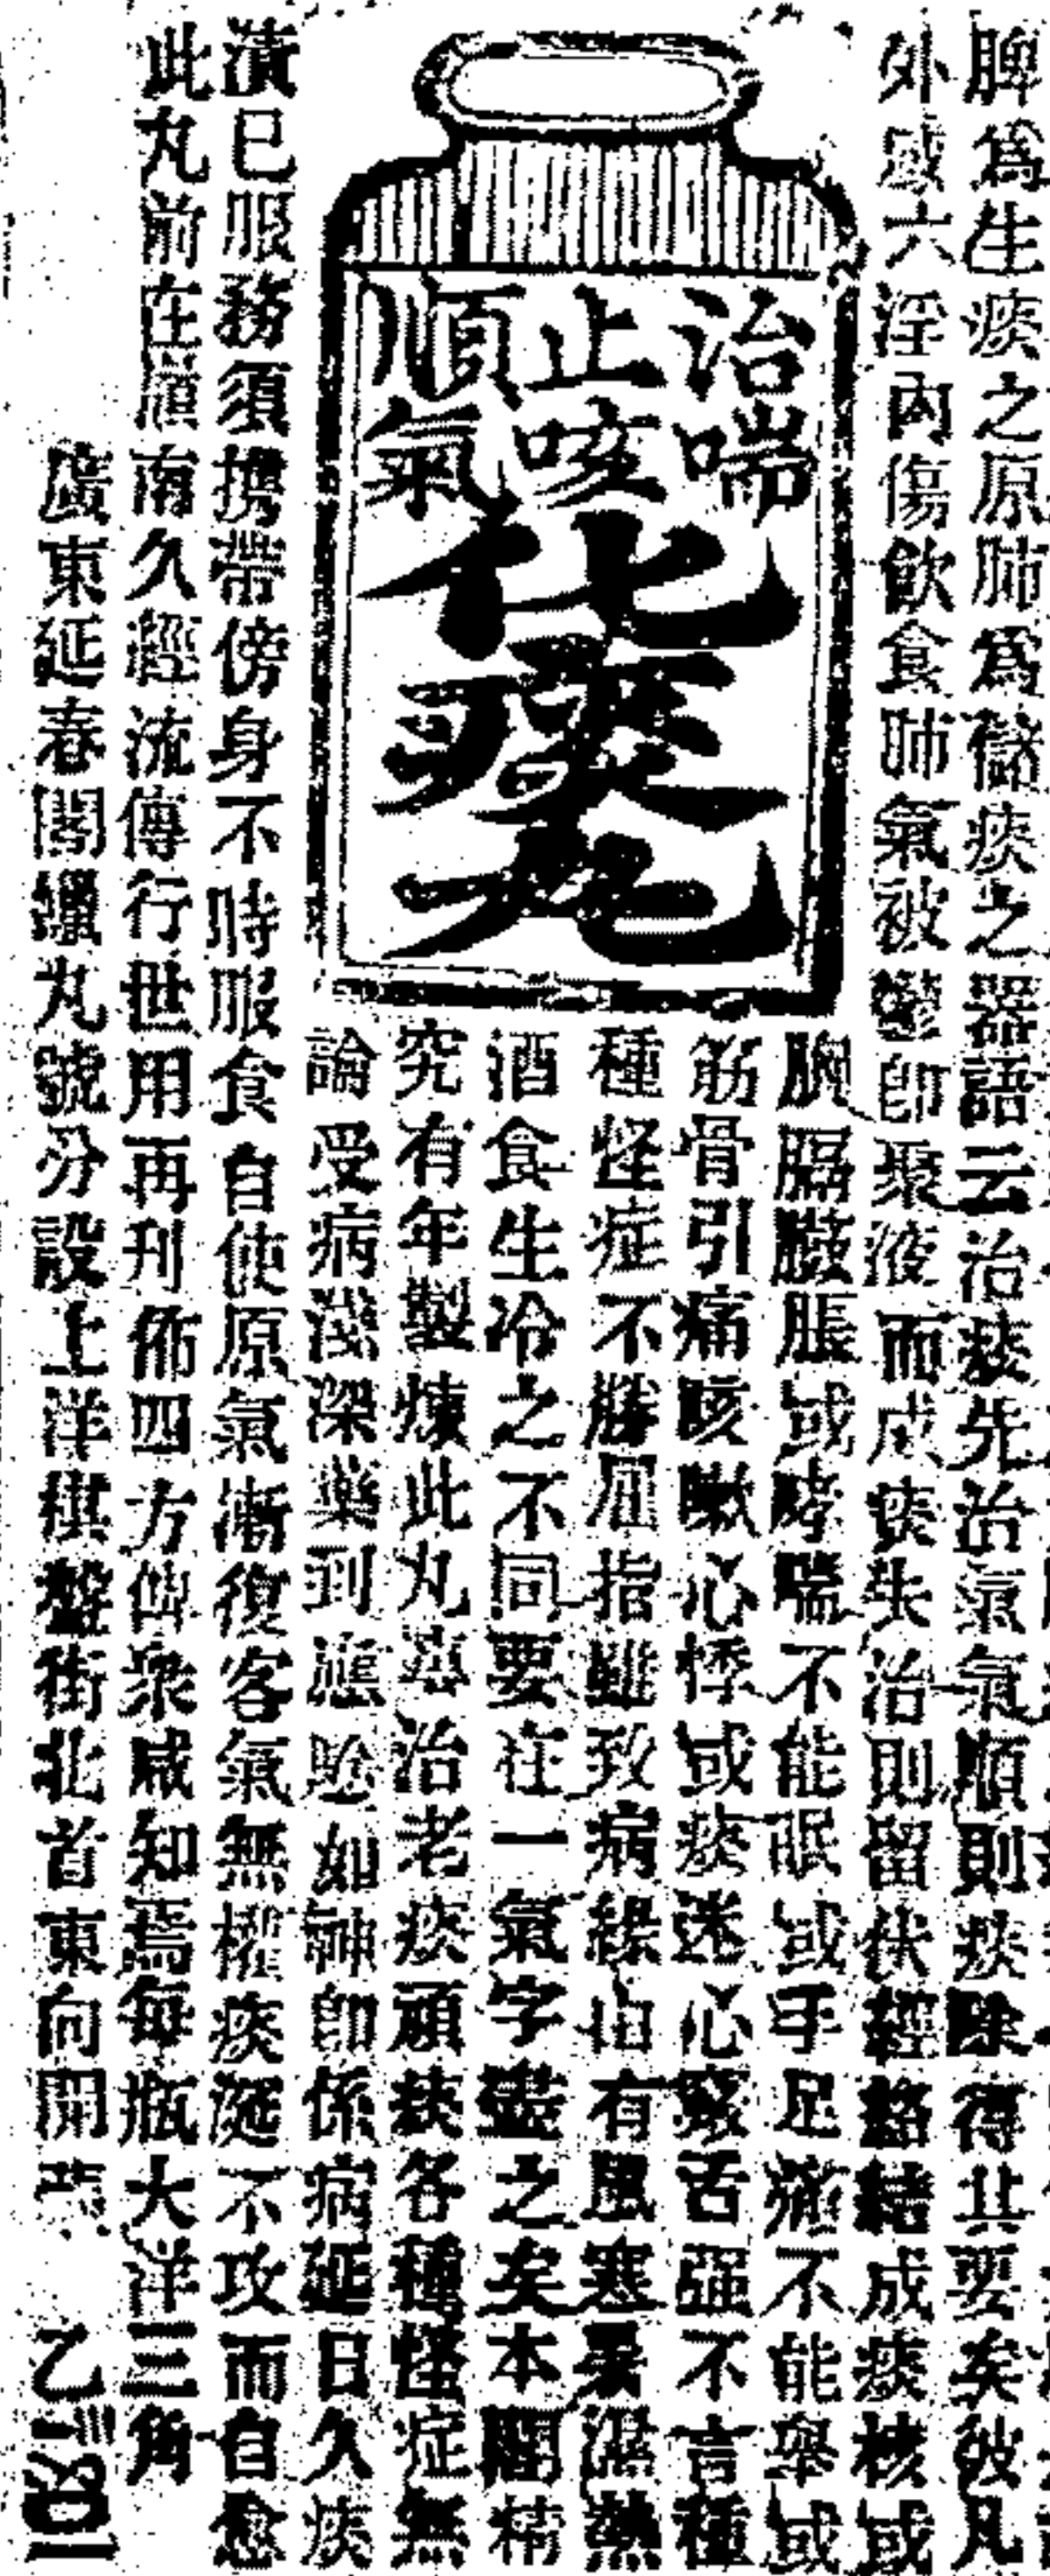 脾爲生痰之原肺爲儲痰之器語云治痰先治氣氣順則痰除得其要矣彼凡
外感六淫內傷飲食肺氣被鬱卽聚液而成痰失治則留伏經絡結成痰核或
治喘
止咳
順氣
化痰丸
胸膈臌脹或哮喘不能眠或手足痛不能舉或
筋骨引痛咳嗽心悸或痰迷心竅舌强不言種
種怪症不勝屈指雖致病緣由有風寒暑濕熱
酒食生冷之不同要在一氣字盡之矣本閣精
究有年製煉此丸專治老痰頑痰各種怪症無
論受病淺深藥到應騐如神卽係病延日久痰
漬已服務須携帶傍身不時服食自使原氣漸復客氣無權痰涎不攻而自愈
此丸前在嶺南久經流傳行世用再刊佈四方俾衆咸知焉每瓶大洋三角
廣東延春閣蠟丸號分設上洋棋盤街北首東向開張